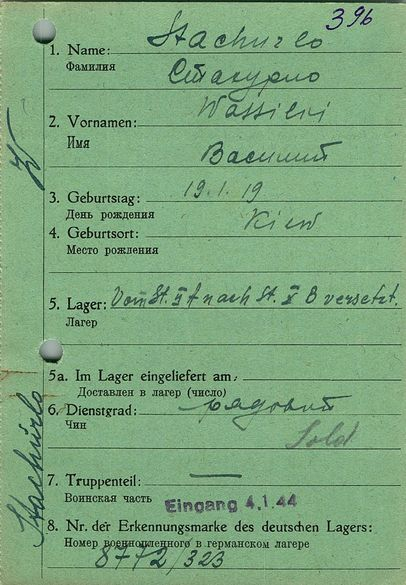 396
Stachurlo
1. Name:
Фамилия
Стахурло
Wassilij
2. Vornamen:
Имя
Василий
3. Geburtstag: 19.1.19
День рождения
Kiew
4. Geburtsort:
Место рождения
5. Lager: Vom St. II A nach St. X B versetzt.
Лагерь
5a. Im Lager eingeliefert am:
Доставлен в лагерь (число)
6. Dienstgrad: рядовой
Чин
Sold
7. Truppenteil: —
Воинская часть
Eingang 4.1.44
8. Nr. der Erkennungsmarke des deutschen Lagers:
Номер военнопленного в германском лагере
8772/323
Stachurlo